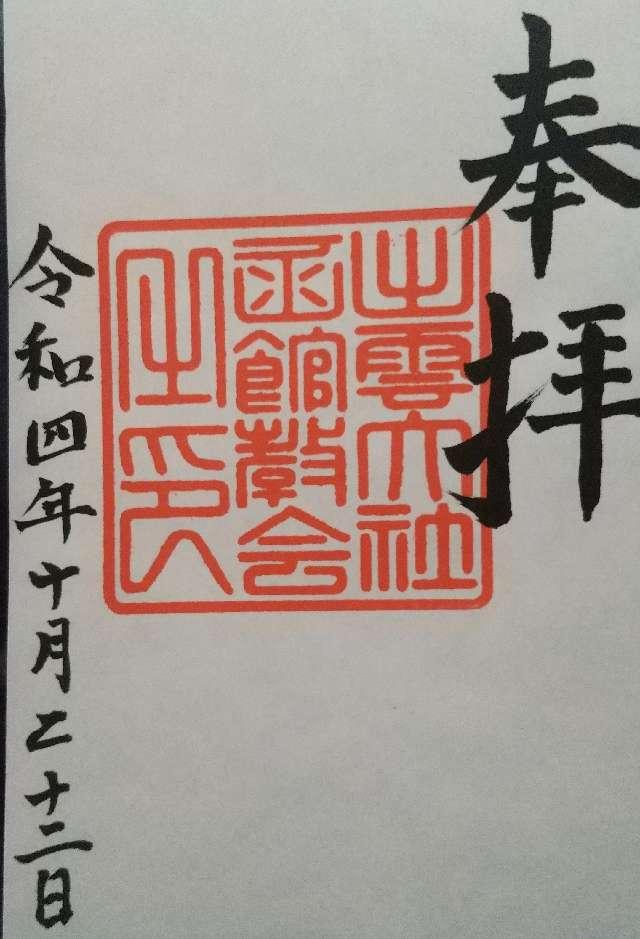 奉拝
出雲大社
函館教会
之印
令和四年十月二十二日